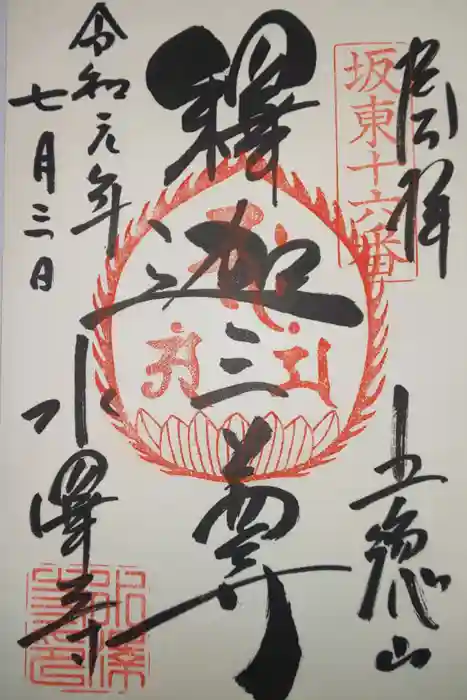 奉拝
坂東十六番
五徳山
釋迦三尊
令和元年
七月三日
水澤寺